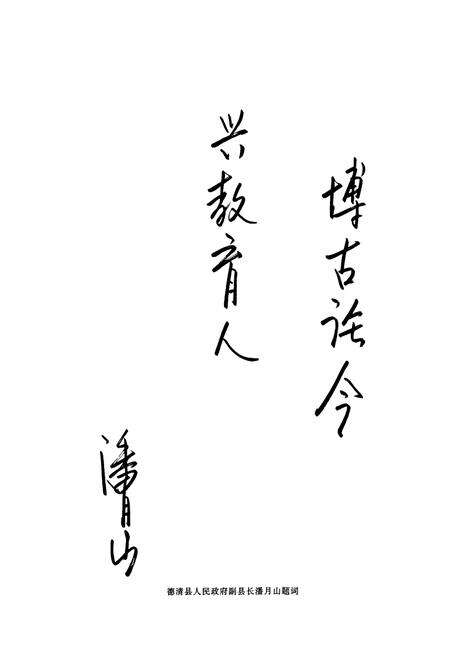 博古今
兴教育人
潘月山
德清县人民政府副县长潘月山题词